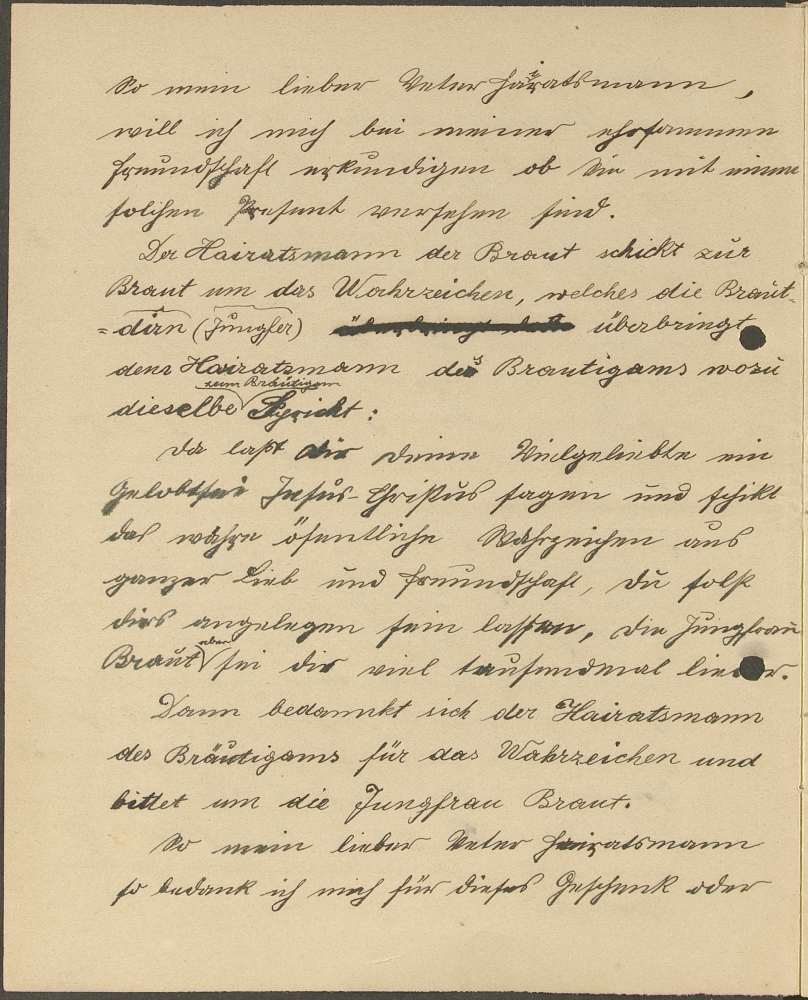 So mein lieber Veter Hairatsmann,
will ich mich bei meiner ehrsammen
Freundschaft erkundigen ob Sie mit einem
solchen Present versehen sind.
Der Hairatsmann der Braut schickt zur
Braut um das Wahrzeichen, welches die Braut-
=dirn (Jungfer) überbringt
dem Hairatsmann des Brautigams wozu
zum Bräutigam
dieselbe Spricht:
Da laßt dir deine Vielgeliebte ein
Gelobtsei Jesus-Christus sagen und schikt
das wahre öfentliche Wahrzeichen aus
ganzer Lieb und Freundschaft, du solst
dirs angelegen sein lassen, die Jungfrau
aber
Braut sei dir viel tausendmal lieber.
Dann bedannkt sich der Hairatsmann
des Bräutigams für das Wahrzeichen und
bittet um die Jungfrau Braut.
So mein lieber Veter Hairatsmann
so bedank ich mich für dieses Geschenk oder